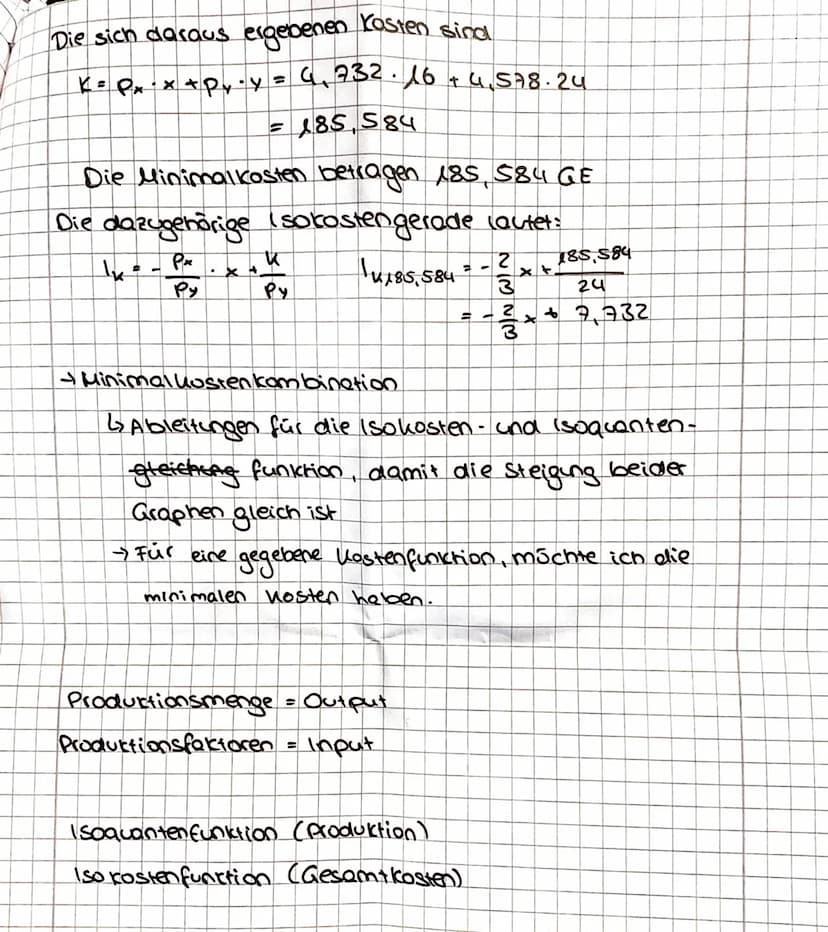 Die sich daraus ergebenen Kosten sind
K = Px · x + Py · y = 4,732 · 16 + 4,578 · 24
= 185,584
Die Minimalkosten betragen 185,584 GE
Die dazugehörige Isokostengerade lautet:
Ik = - Px/Py · x + K/Py    IK185,584 = - 2/3 x + 185,584/24
= - 2/3 x + 7,732
→ Minimalkostenkombination
↳ Ableitungen für die Isokosten- und Isoquanten-
gleichung funktion, damit die Steigung beider
Graphen gleich ist
→ Für eine gegebene Kostenfunktion, möchte ich die
minimalen Kosten haben.
Productionsmenge = Output
Produktionsfaktoren = Input
Isoquantenfunktion (Produktion)
Isokostenfunction (Gesamtkosten)